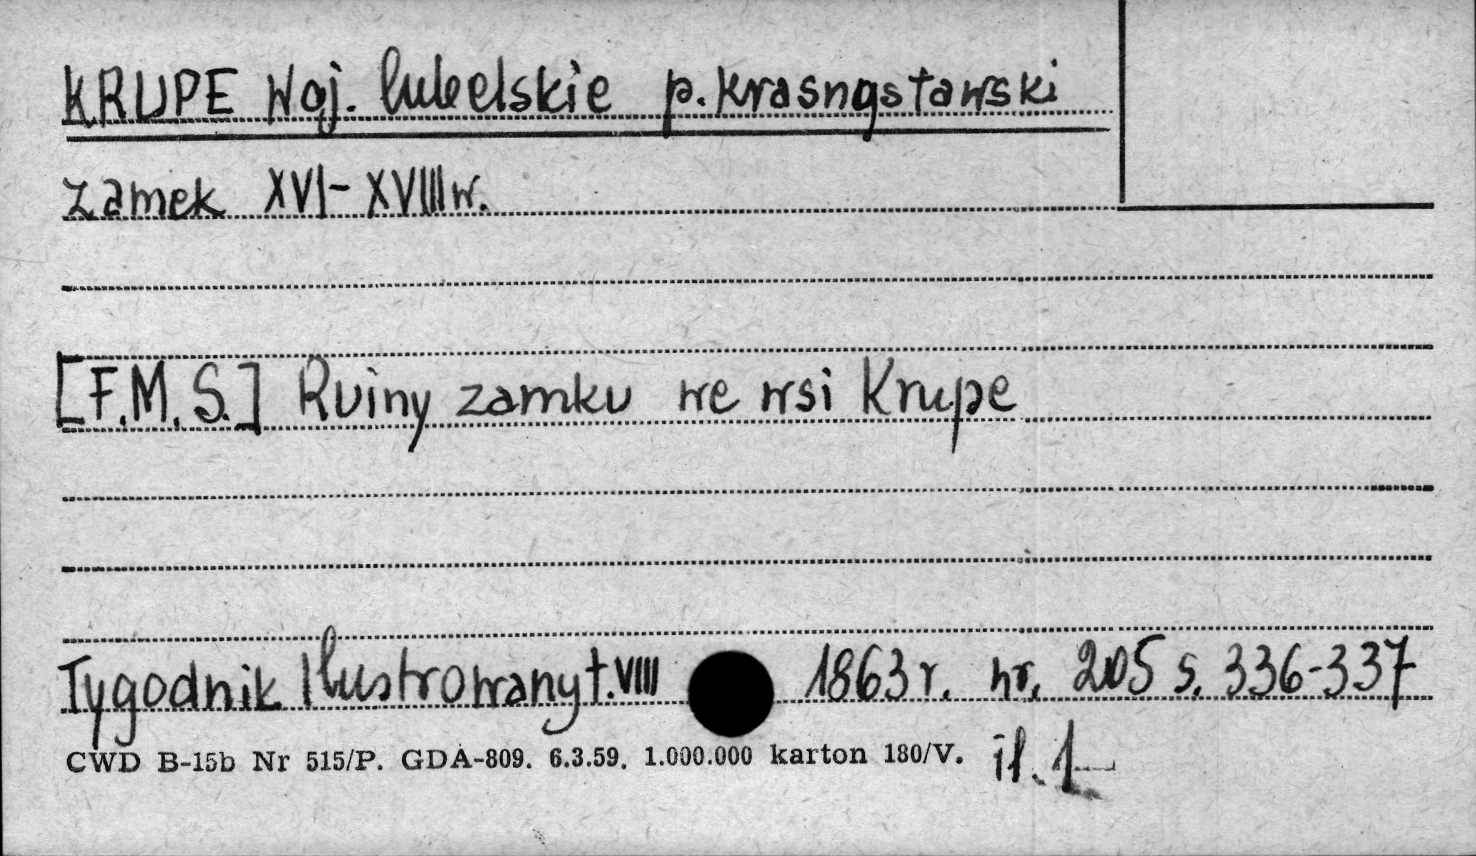 KRUPE Woj. lubelskie p. Krasnystawski
Zamek XVI-XVIII w.
[F.M.S.] Ruiny zamku we wsi Krupe
Tygodnik Ilustrowany t. VIII 1863 r. nr. 205 s. 336-337
CWD B-15b Nr 515/P. GDA-809. 6.3.59. 1.000.000 karton 180/V. il. 1